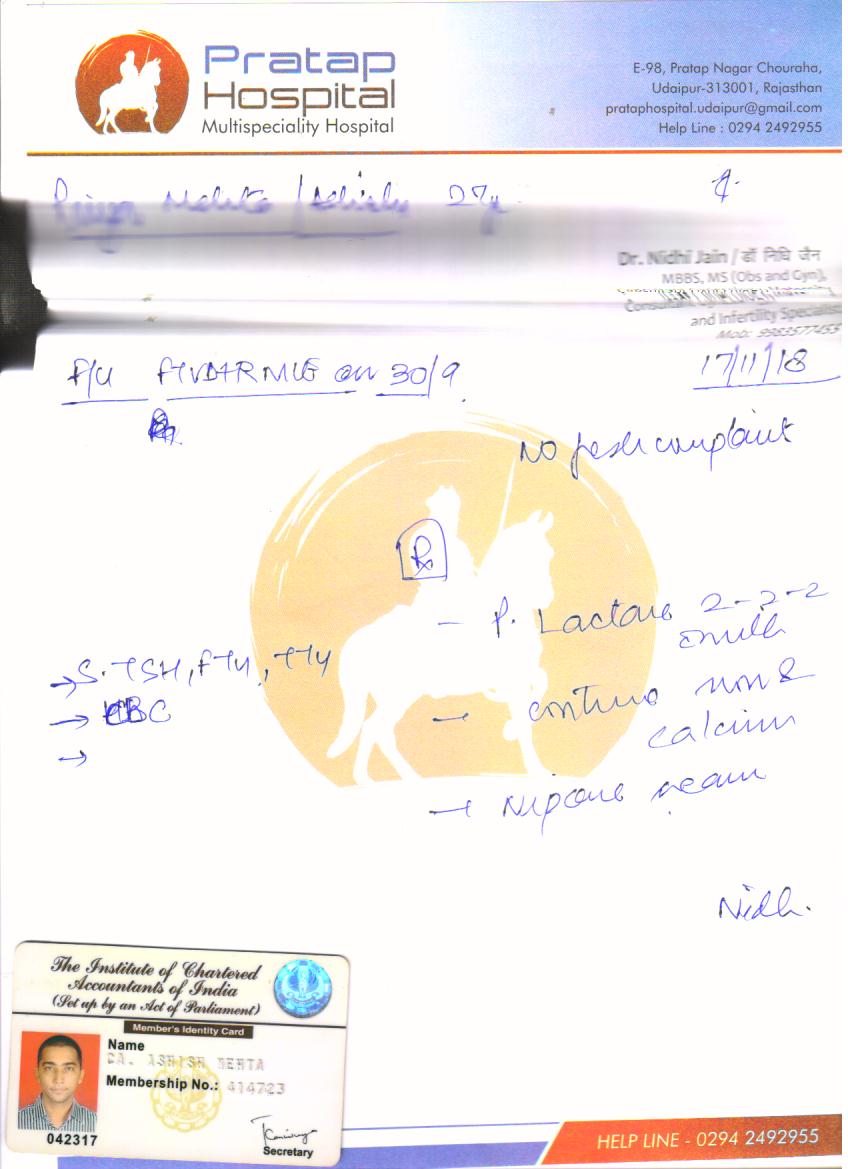 Pratap
Hospital
Multispeciality Hospital
E-98, Pratap Nagar Chouraha,
Udaipur-313001, Rajasthan
prataphospital.udaipur@gmail.com
Help Line : 0294 2492955
Mehta / 27y
Dr. Nidhi Jain / डॉ निधि जैन
MBBS, MS (Obs and Gyn),
and Infertility Specialist
Mob: 9983577455
F/U FTVD+RMLE on 30/9
17/11/18
No fresh complaint
Rx
- P. Lactone 2-2-2
→ S. TSH, FT4,
→ CBC
→ continue &
calcium
→
→ cream
Nidhi
The Institute of Chartered
Accountants of India
(Set up by an Act of Parliament)
Member's Identity Card
Name
CA. ASHISH MEHTA
Membership No.: 414723
042317
Secretary
HELP LINE - 0294 2492955